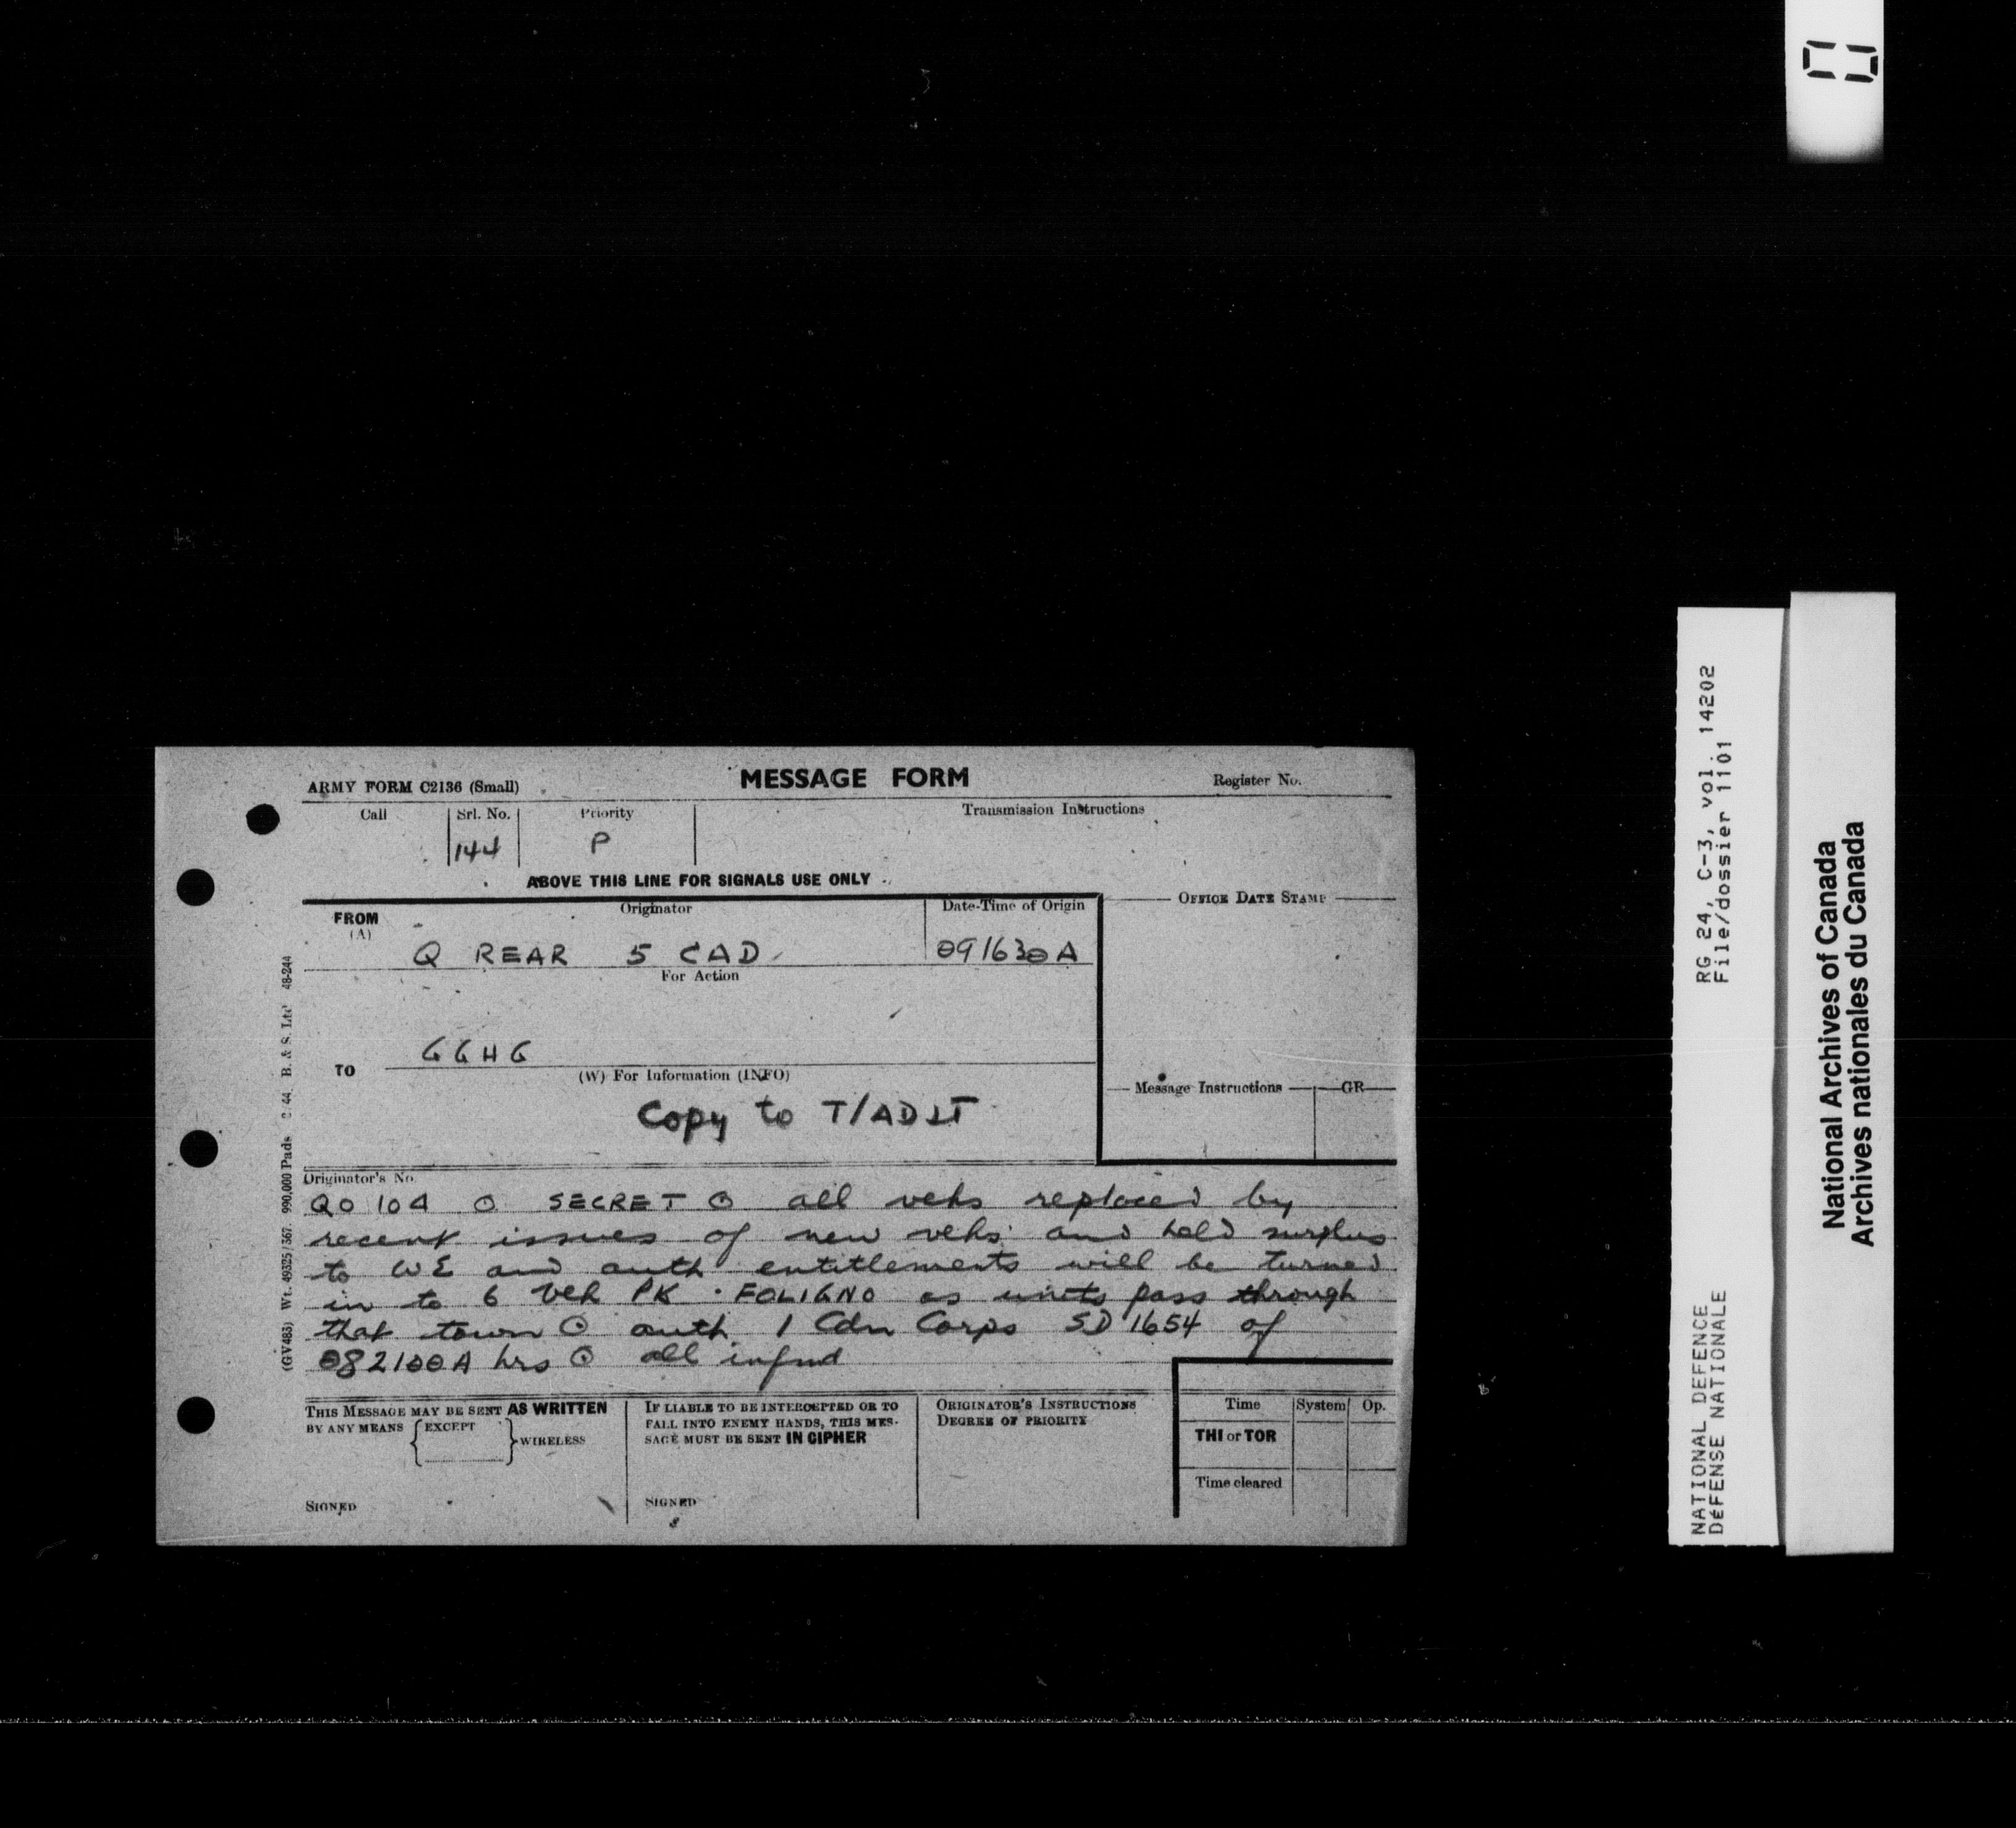 ARMY FORM C2136 (Small)
MESSAGE FORM
Register No.
Call
Srl. No.
Priority
Transmission Instructions
144
P
ABOVE THIS LINE FOR SIGNALS USE ONLY
FROM
(A)
Originator
Date-Time of Origin
OFFICE DATE STAMP
Q REAR 5 CAD
091630A
For Action
GGHG
TO
(W) For Information (INFO)
Message Instructions
GR
Copy to T/ADJT
Originator's No.
QO 104 O SECRET O all vehs replaced by
recent issues of new vehs and held surplus
to WE and auth entitlements will be turned
in to 6 Veh PK . FOLIGNO as units pass through
that town O auth 1 Cdn Corps SD 1654 of
082100A hrs O all infmd
THIS MESSAGE MAY BE SENT AS WRITTEN
BY ANY MEANS
EXCEPT
WIRELESS
SIGNED
IF LIABLE TO BE INTERCEPTED OR TO
FALL INTO ENEMY HANDS, THIS MES-
SAGE MUST BE SENT IN CIPHER
SIGNED
ORIGINATOR'S INSTRUCTIONS
DEGREE OF PRIORITY
Time
System
Op.
THI or TOR
Time cleared
(GV483) Wt. 49325/367 990,000 Pads 2/44. B. & S. Ltd 48-244
RG 24, C-3, vol. 14202
File/dossier 1101
NATIONAL DEFENCE
DÉFENSE NATIONALE
National Archives of Canada
Archives nationales du Canada